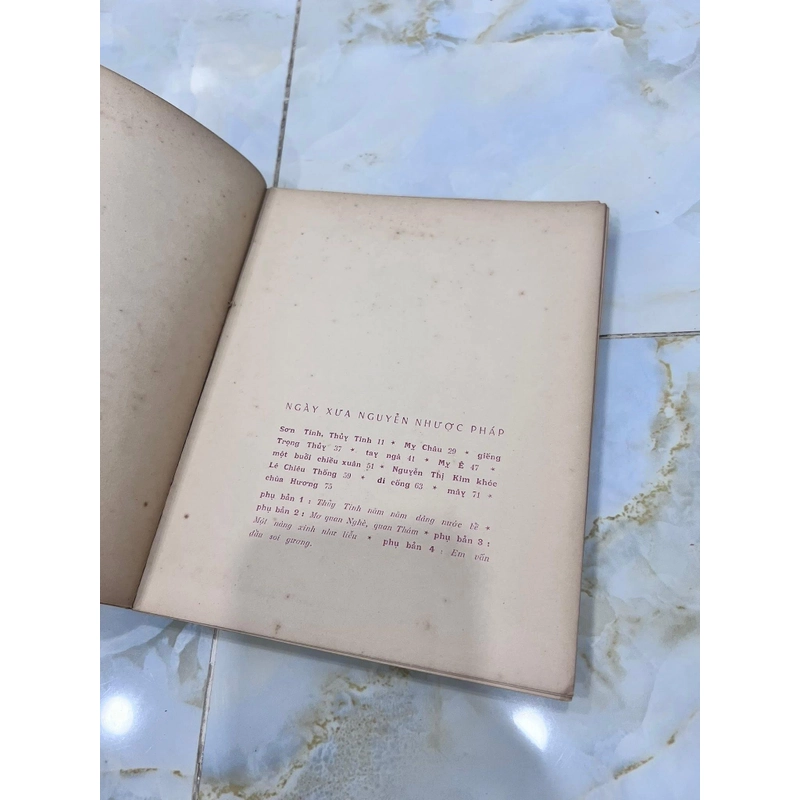 NGÀY XƯA NGUYỄN NHƯỢC PHÁP
Sơn Tinh, Thủy Tinh 11 * Mỵ Châu 29 * giếng
Trọng Thủy 37 * tay ngà 41 * Mỵ Ê 47 *
một buổi chiều xuân 51 * Nguyễn Thị Kim khóc
Lê Chiêu Thống 59 * đi cống 63 * mây 71 *
chùa Hương 75
phụ bản 1 : Thủy Tinh năm năm dâng nước bể *
phụ bản 2 : Mơ quan Nghè, quan Thám * phụ bản 3 :
Một nàng xinh như liễu * phụ bản 4 : Em vấn
đầu soi gương.